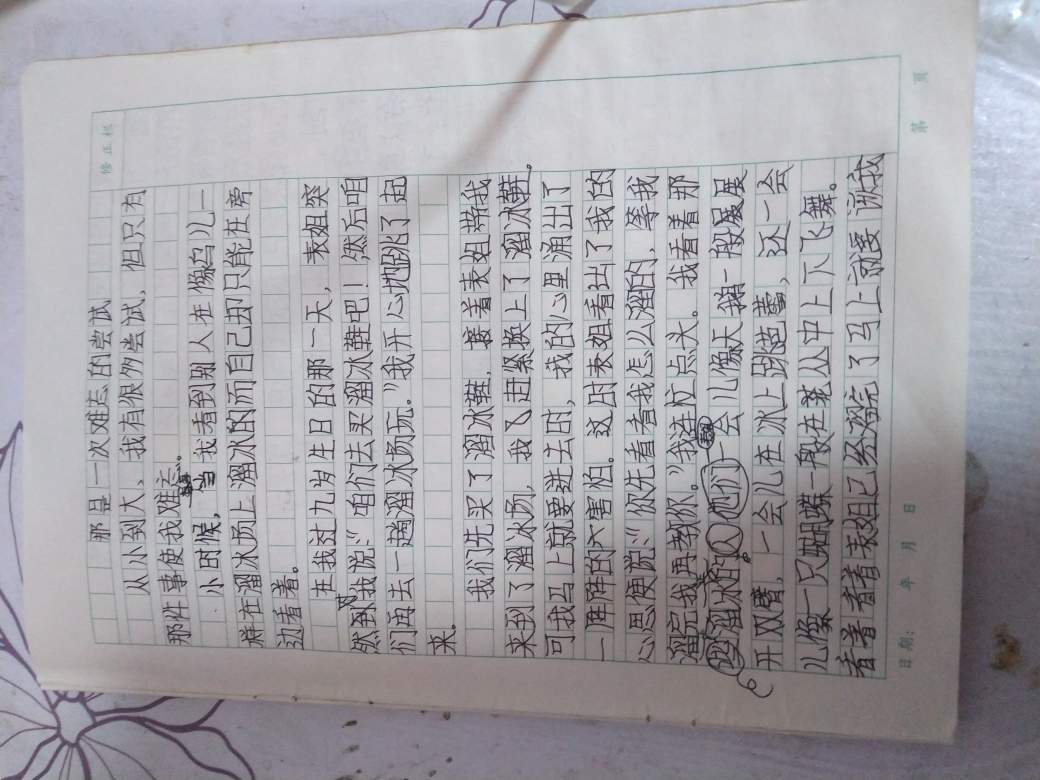 修正栏
那是一次难忘的尝试
从小到大、我有很多尝试，但只有
那件事使我难忘。
小时候，当我看到别人在像鸟儿一
样在溜冰场上溜冰的而自己却只能在旁
边看着。
在我过九岁生日的那一天，表姐突
然对我说："咱们去买溜冰鞋吧！然后咱
们再去一趟溜冰场玩。"我开心地跳了起
来。
我们先买了溜冰鞋，接着表姐带我
来到了溜冰场，我飞赶紧换上了溜冰鞋。
可我马上就要进去时，我的心里涌出了
一阵阵的害怕。这时表姐看出了我的
心思便说："你先看看我怎么溜的，等我
溜完我再教你。"我连忙点头。我看着那
溜冰的人他们一会儿像天鹅一般展展
开双臂，一会儿在冰上跳芭蕾，还一会
儿像一只蝴蝶一般在花丛中上下飞舞。
看着看着表姐已经溜完了马上就要训我
日期： 年 月 日
第 页